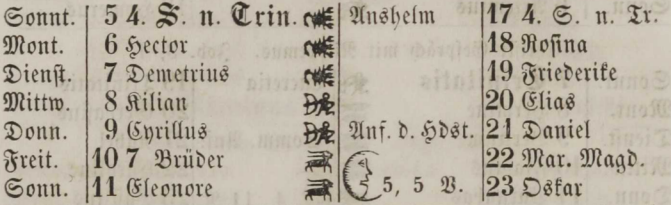 Sonnt. 5 4. S. n. Trin. Anshelm 17 4. S. n. Tr.
Mont. 6 Hector 18 Rosina
Dienst. 7 Demetrius 19 Friederike
Mittw. 8 Kilian 20 Elias
Donn. 9 Cyrillus Anf. d. Hdst. 21 Daniel
Freit. 10 7 Brüder 22 Mar. Magd.
Sonn. 11 Eleonore 5, 5 V. 23 Oskar